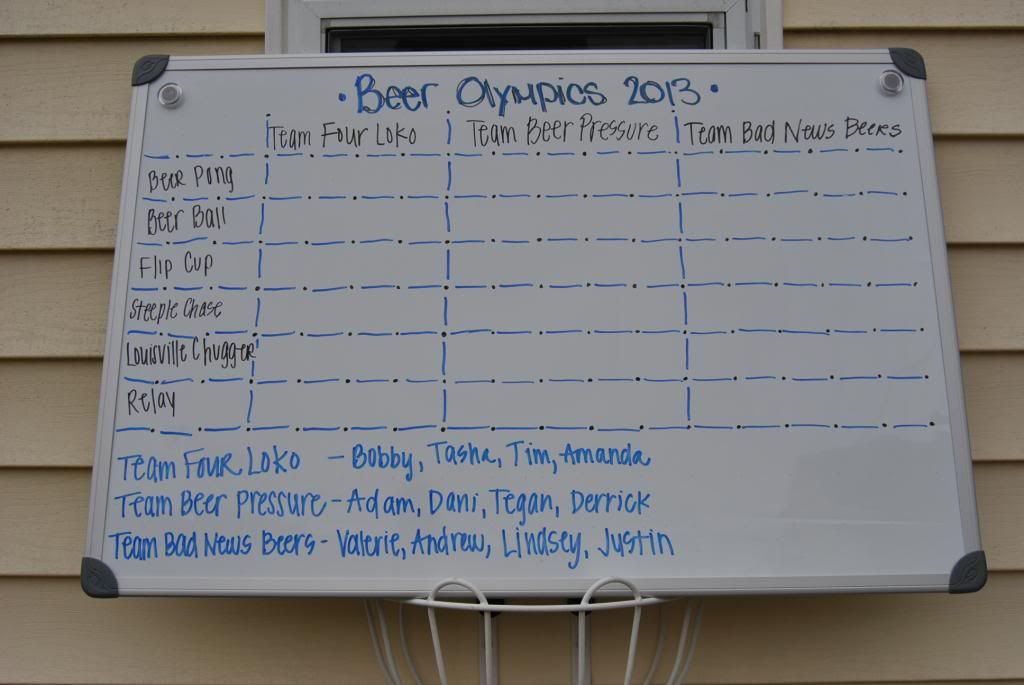 • Beer Olympics 2013 •
Team Four Loko Team Beer Pressure Team Bad News Beers
Beer Pong
Beer Ball
Flip Cup
Steeple Chase
Louisville Chugger
Relay
Team Four Loko - Bobby, Tasha, Tim, Amanda
Team Beer Pressure - Adam, Dani, Tegan, Derrick
Team Bad News Beers - Valerie, Andrew, Lindsey, Justin